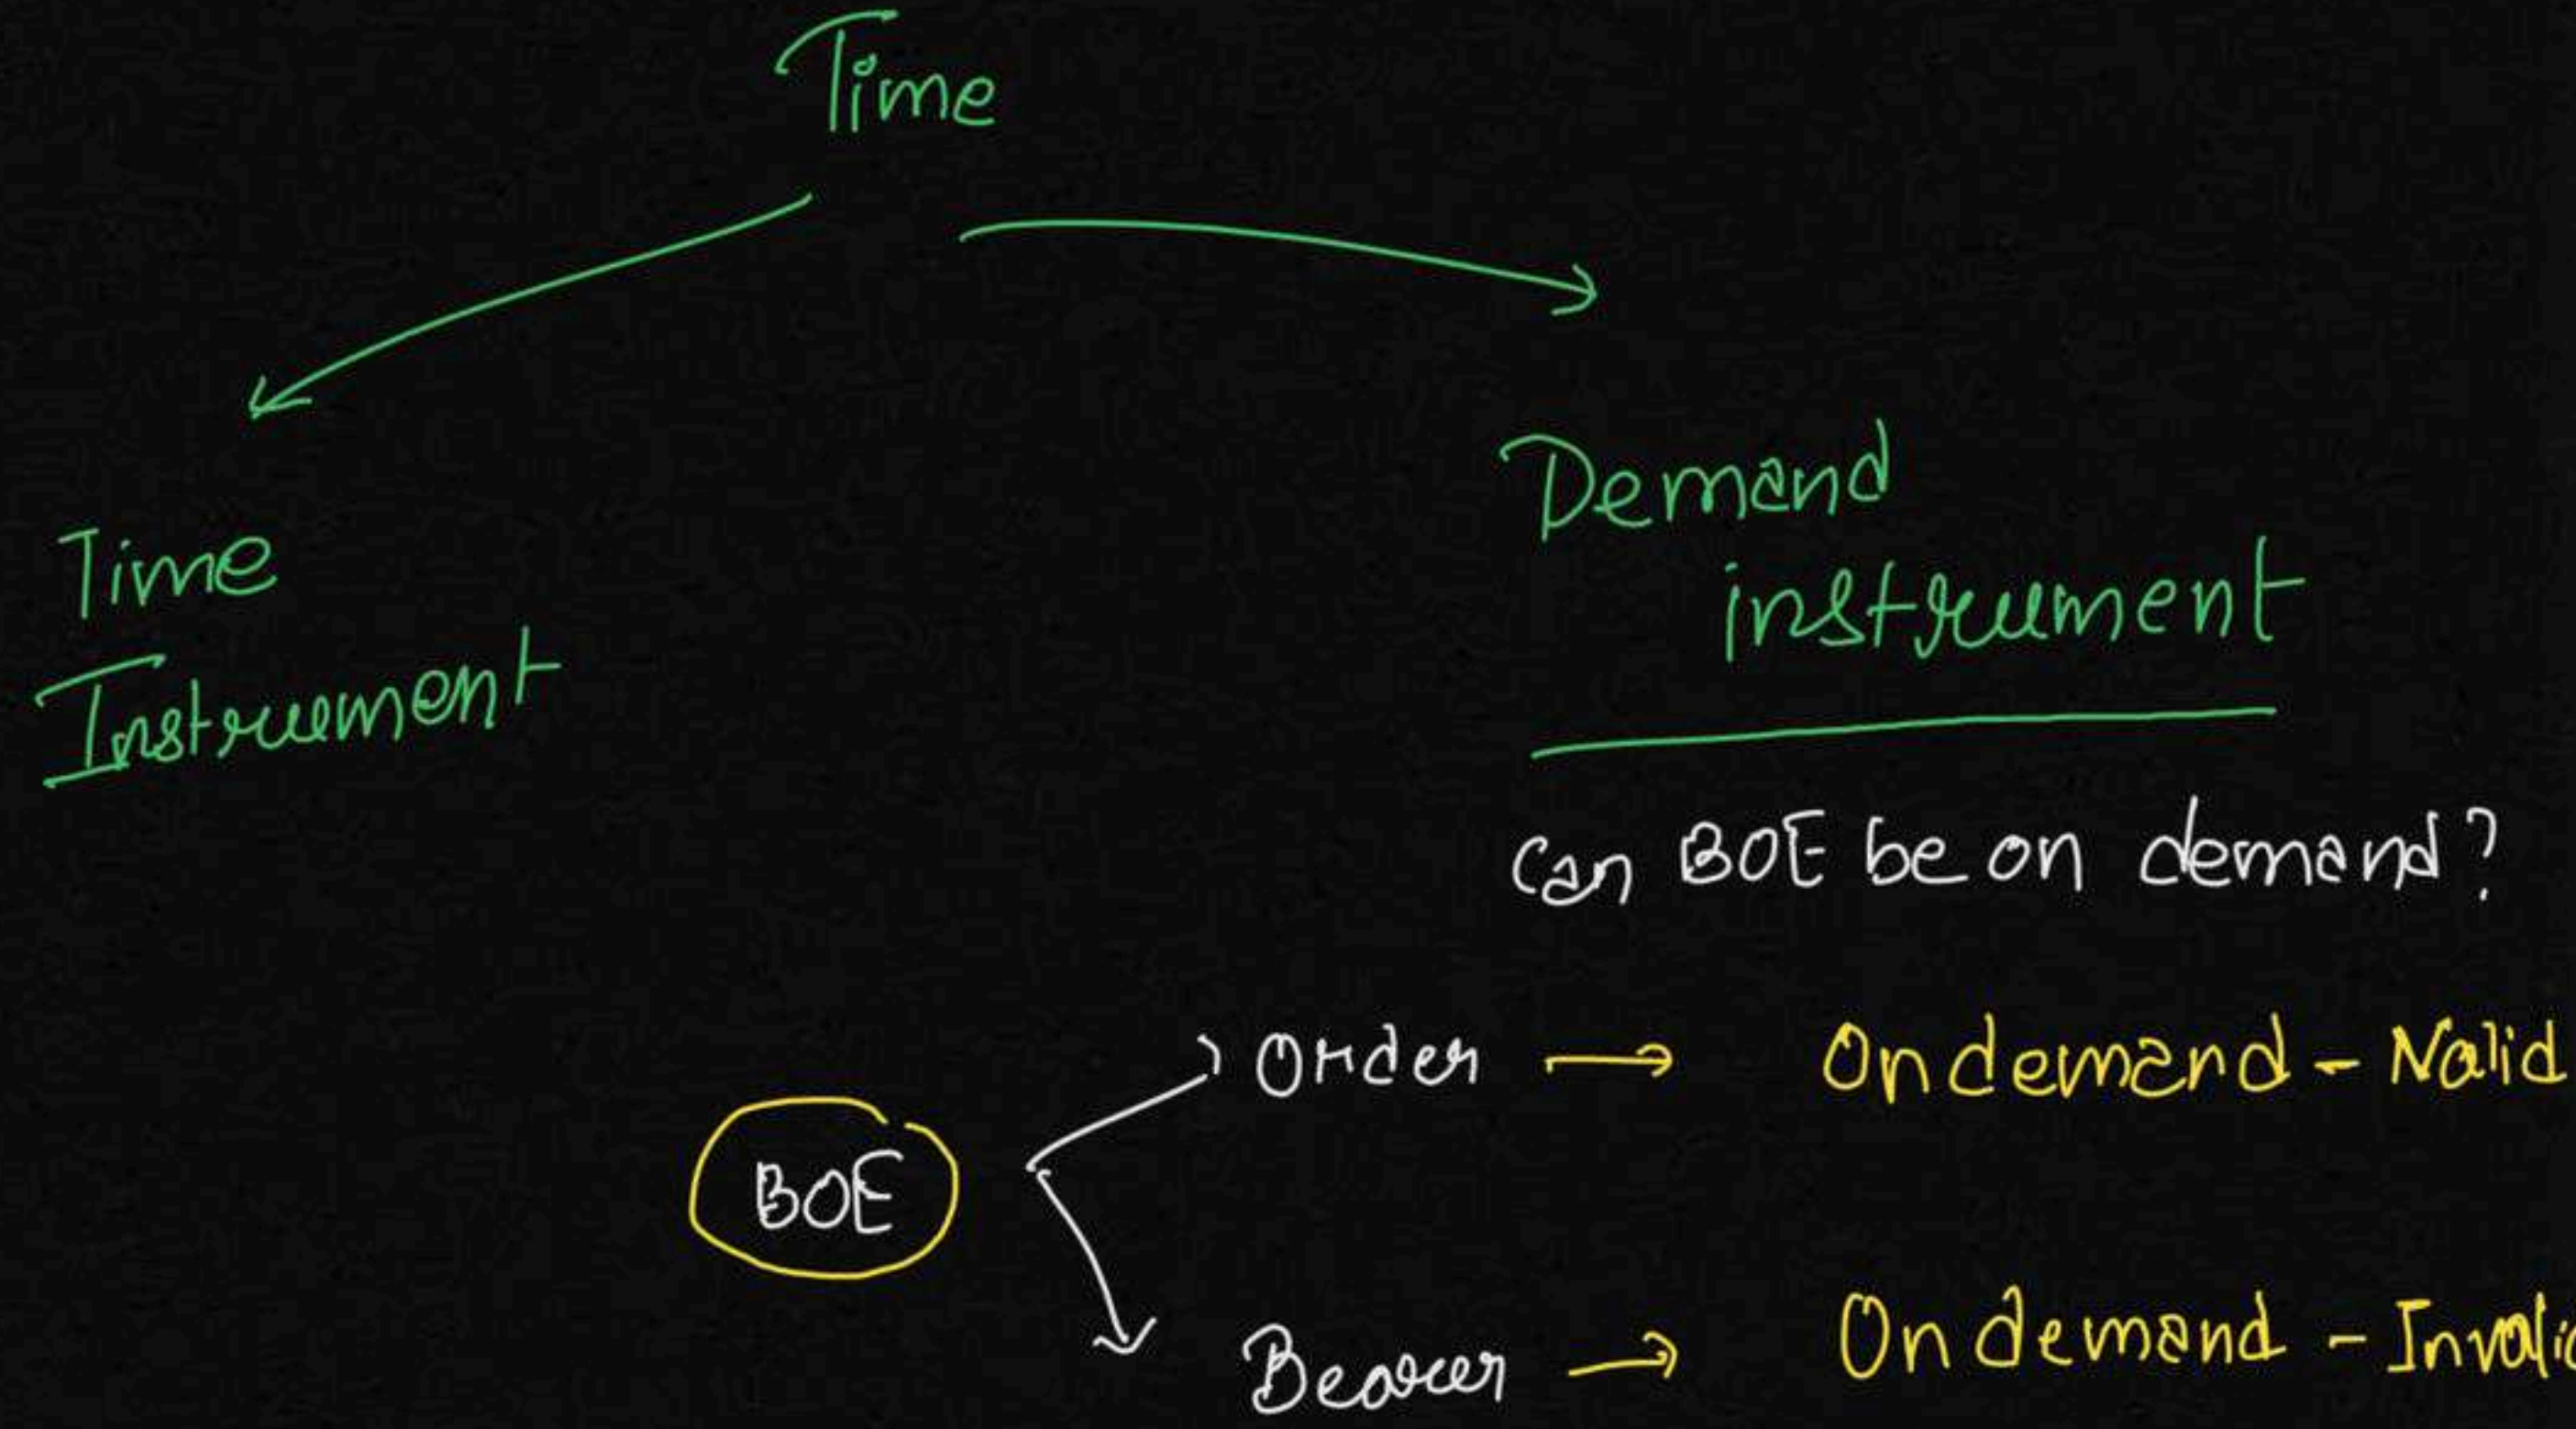 Time
Time
Instrument
Demand
instrument
Can BOE be on demand?
BOE
Order → On demand - Valid
Bearer → On demand - Invalid